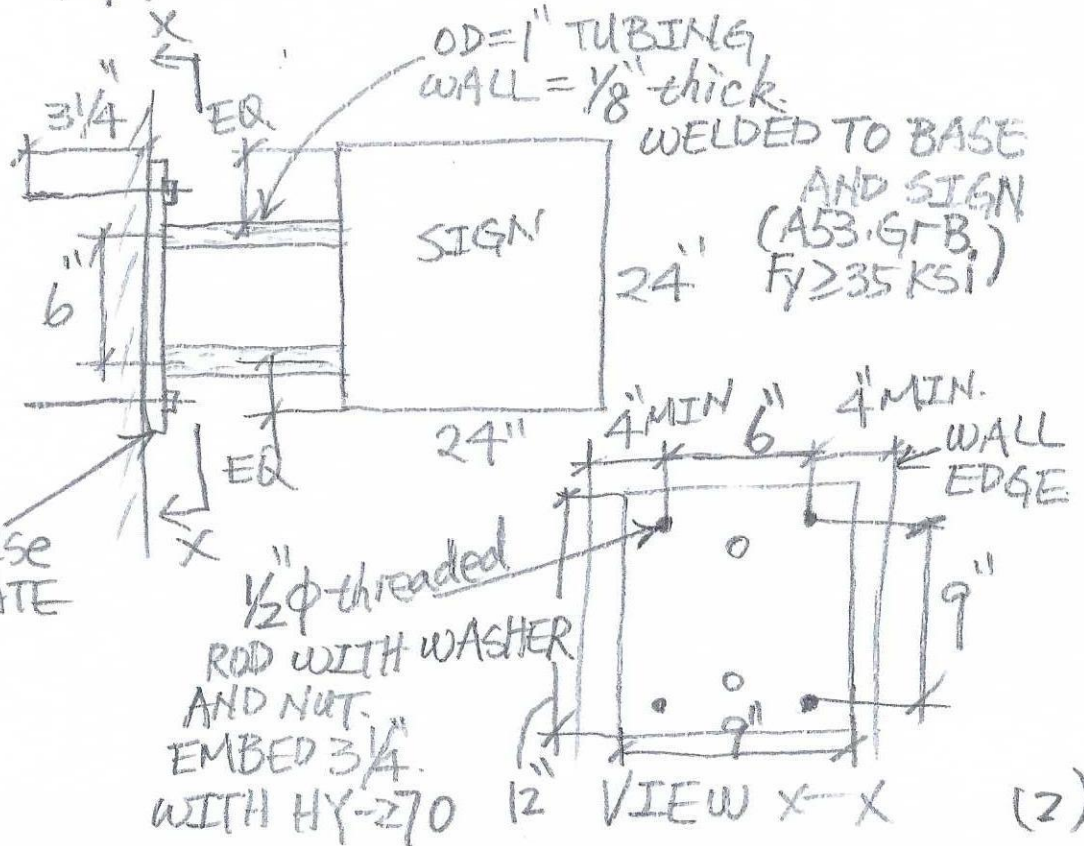 X
OD=1" TUBING
WALL = 1/8" thick.
3 1/4"
EQ.
WELDED TO BASE
AND SIGN
(A53.GrB.
Fy≥35 KSi)
SIGN
24"
6"
24"
EQ
X
4" MIN
6"
4" MIN.
WALL
EDGE
1/2"ϕ threaded
ROD WITH WASHER
AND NUT.
EMBED 3 1/4".
WITH HY-270
9"
9"
12"
VIEW X-X
(2)